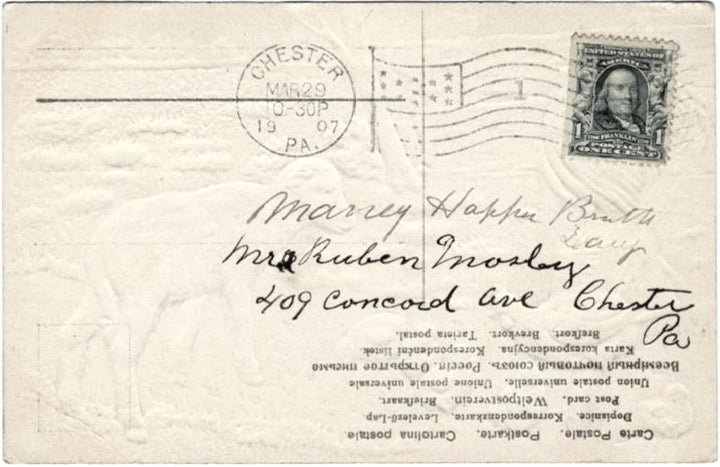 CHESTER
MAR 29
10-30P
19 07
PA.
1
UNITED STATES OF
AMERICA
1 FRANKLIN 1
POSTAGE
ONE CENT
Happy
Mrs Ruben Mosley
409 Concord Ave Chester
Pa
Carte Postale. Postkarte. Cartolina postale.
Dopisnice. Korrespondenzkarte. Levelező-Lap
Post card. Weltpostverein. Briefkaart.
Union postale universelle. Unione postale universale
Всемірный почтовый союзъ. Россія. Открытое письмо
Karta korespondencyjna. Korespondenční lístek.
Brefkort. Brevkort. Tarjeta postal.